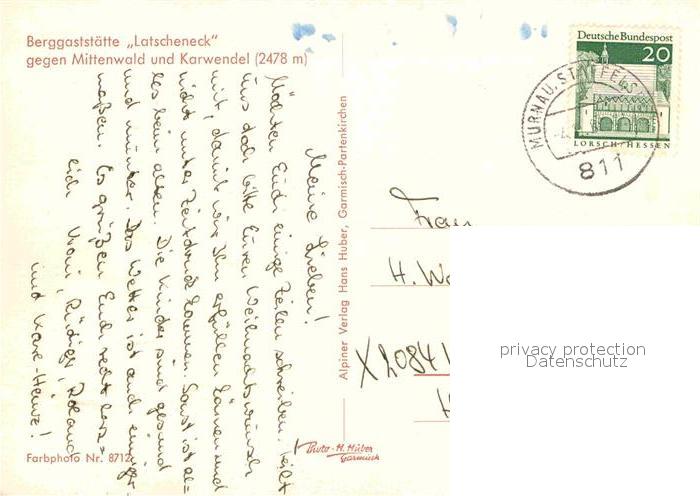 Berggaststätte „Latscheneck"
gegen Mittenwald und Karwendel (2478 m)
Meine Lieben!
Möchten Euch einige Zeilen schreiben. Teilt
uns doch bitte Euren Weihnachtswunsch
mit, damit wir ihn erfüllen können und
nicht unter Zeitdruck kommen. Sonst ist al-
les beim alten. Die Kinder sind gesund
und munter. Das Wetter ist auch einiger
maßen. Es grüßen Euch recht herz-
lich Vroni, Rüdiger, Roland
und Karl-Heinz!
Farbphoto Nr. 8712
Alpiner Verlag Hans Huber, Garmisch-Partenkirchen
Photo-H. Huber
Garmisch
Deutsche Bundespost
20
LORSCH/HESSEN
MURNAU, STAFFELS
811
Frau
H. W
X 2084
privacy protection
Datenschutz